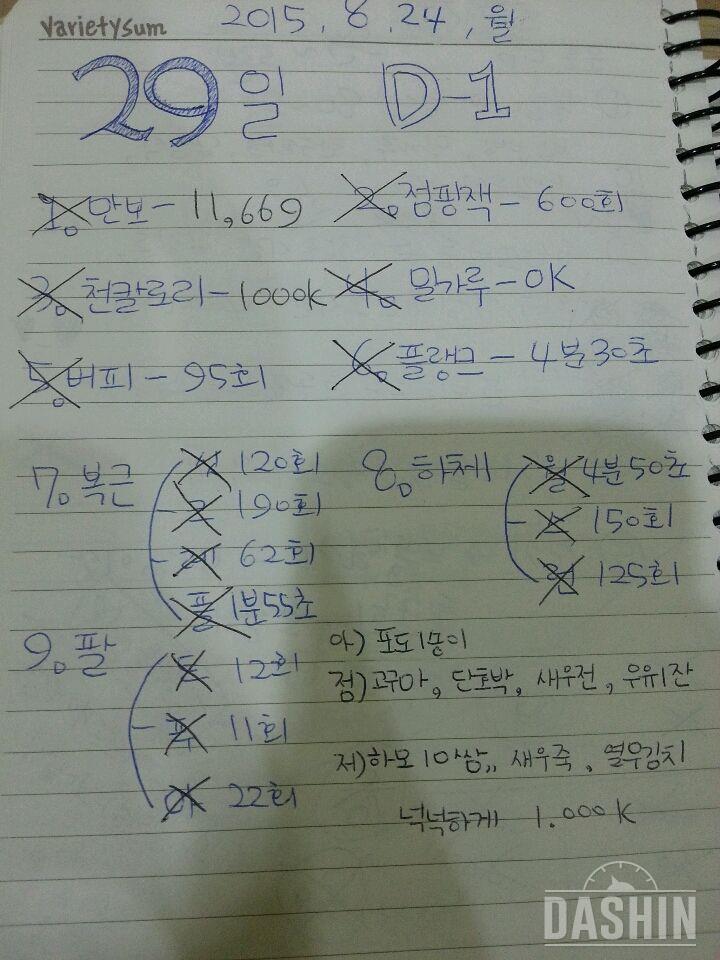 varietysum 2015. 8. 24, 월
29일 D-1
1. 만보 - 11,669 2. 점핑잭 - 600회
3. 천칼로리 - 1000K 4. 밀가루 - OK
5. 버피 - 95회 6. 플랭크 - 4분30초
7. 복근 120회 8. 하체 월 4분50초
190회 150회
62회 런 125회
플 1분55초
9. 팔 12회
11회
22회
아) 포도1송이
점) 고구마, 단호박, 새우전, 우유1잔
저) 새우죽, 열무김치
넉넉하게 1.000K
DASHIN